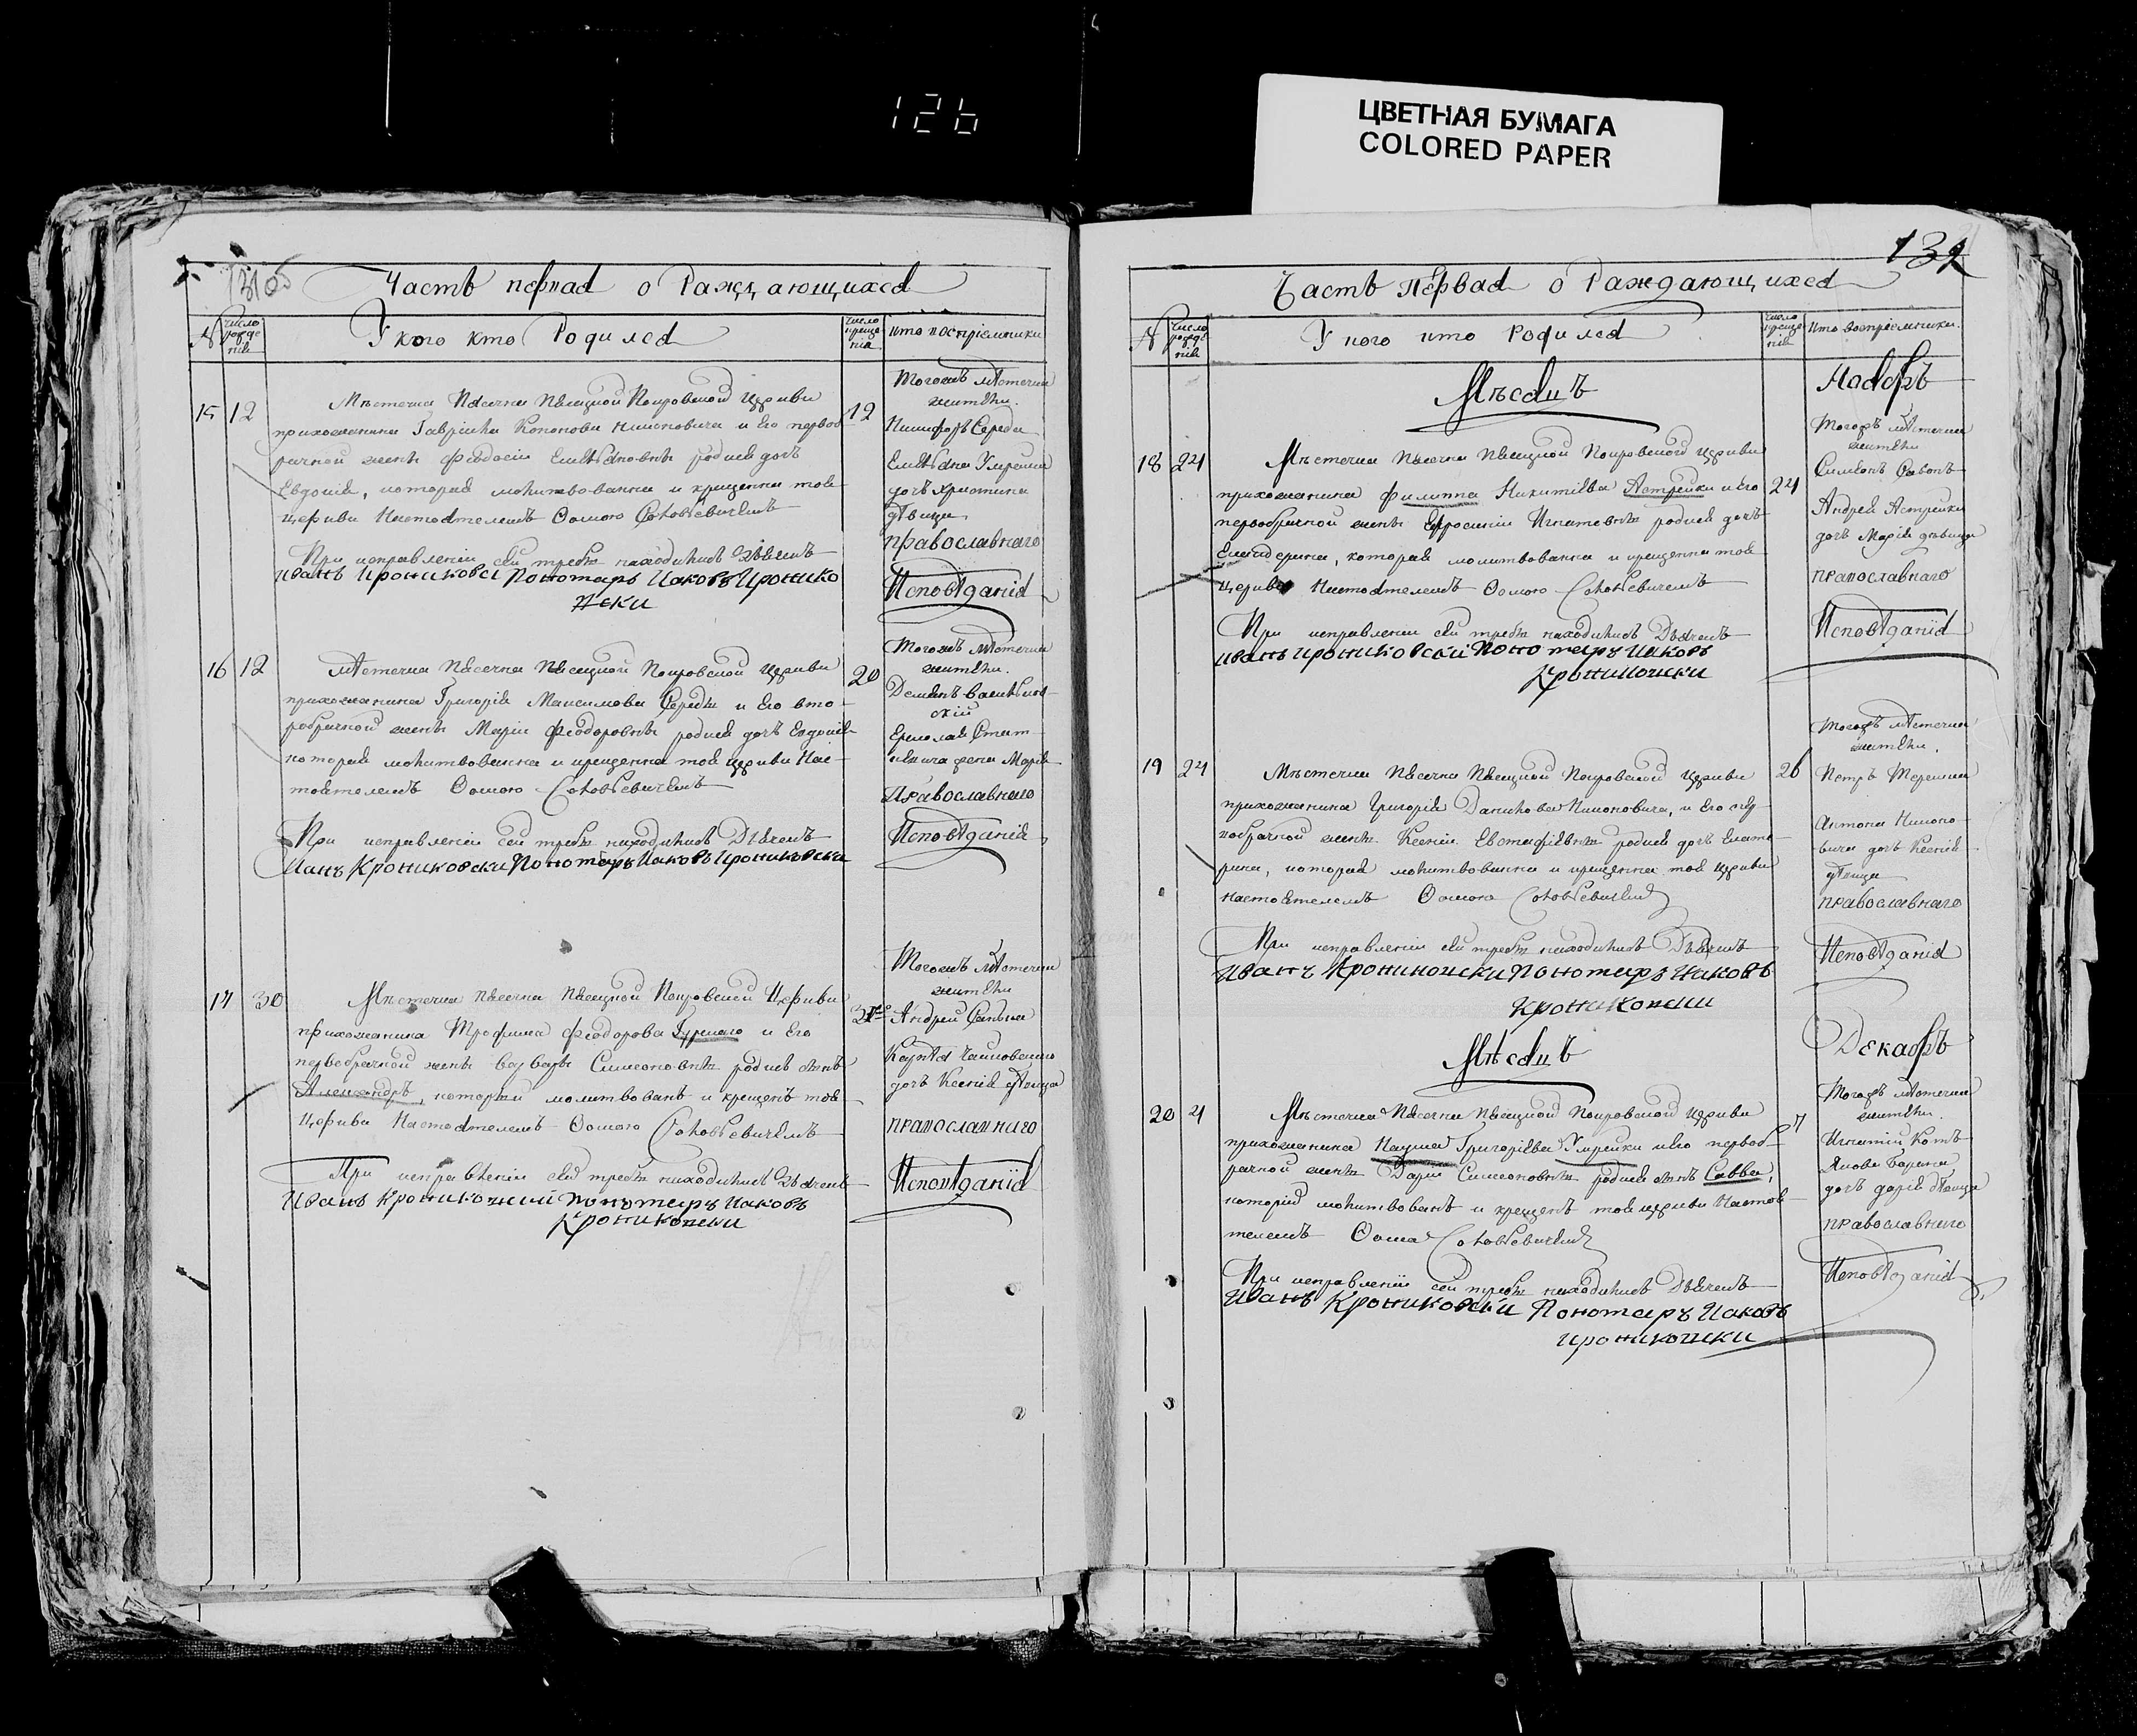 126
ЦВЕТНАЯ БУМАГА
COLORED PAPER
Часть первая о Раждающихся
№
число рожде нія
У кого кто Родился
число креще нія
кто воспріемники
15 12
Мѣстечка Пѣсочна Пѣсоцкой Покровской Церкви 12
прихожанина Гавріила Кононова и его первоб
рачной жены Феодосіи родися дочь
Евдокія, которая молитвованна и крещенна той
церкви Настоятелемъ Ѳомою
При исправленіи сей требы находились Дьячекъ
Иванъ Крониковски Пономарь Иаковъ Кронико
вски
Тогожъ мѣстечка
жители
Никифоръ Середа
дочь Христина
дѣвица
православнаго
Исповѣданія
16 12
Мѣстечка Пѣсочна Пѣсоцкой Покровской Церкви 20
прихожанина Григорія Максимова Середы и его вто
робрачной жены Маріи Феодоровны родися дочь Евдокія
которая молитвованна и крещенна той церкви Нас
тоятелемъ Ѳомою
При исправленіи сей требы находились Дьячекъ
Иванъ Крониковски Пономарь Иаковъ Крониковски
Тогожъ мѣстечка
жители
Ермолая
жена Марія
Православнаго
Исповѣданія
17 30
Мѣстечка Пѣсочна Пѣсоцкой Покровской Церкви
прихожанина Трофима Феодорова и Его
первобрачной жены Варвары Симеоновны родися сынъ
Александръ, который молитвованъ и крещенъ той
Церкви Настоятелемъ Ѳомою
При исправленіи сей требы находились Дьячекъ
Иванъ Крониковский Пономарь Иаковъ
Крониковски
Тогожъ мѣстечка
жители
Андрей
дочь Ксенія дѣвица
православнаго
Исповѣданія
132
Часть Первая о Раждающихся
№
число рожде нія
У кого кто Родился
число креще нія
кто воспріемники
Мѣсяцъ Ноябрь
18 24
Мѣстечка Пѣсочна Пѣсоцкой Покровской Церкви
прихожанина Филиппа Никитіева Астрейки и его 24
первобрачной жены Ефросиніи Игнатовны родися дочь
Екатерина, которая молитвованна и крещенна той
Церкви Настоятелемъ Ѳомою
При исправленіи сей требы находились Дьячекъ
Иванъ Крониковский Пономарь Иаковъ
Крониковски
Тогожъ мѣстечка
жители
Симеонъ
Андрея Астрейки
дочь Марія дѣвица
православнаго
Исповѣданія
19 24
Мѣстечка Пѣсочна Пѣсоцкой Покровской Церкви 26
прихожанина Григорія Данилова и Его пер
вобрачной жены Ксеніи Евстафіевны родися дочь Екате
рина, которая молитвованна и крещенна той церкви
настоятелемъ Ѳомою
При исправленіи сей требы находились Дьячекъ
Иванъ Крониковски Пономарь Иаковъ
Крониковски
Тогожъ мѣстечка
жители
Петръ
Антона
дочь Ксенія
дѣвица
православнаго
Исповѣданія
Мѣсяцъ Декабрь
20 4
Мѣстечка Пѣсочна Пѣсоцкой Покровской Церкви 7
прихожанина Наума Григоріева Умрейки и его первоб
рачной жены Даріи Симеоновны родися сынъ Савва,
которій молитвованъ и крещенъ той церкви Настоя
телемъ Ѳома
При исправленіи сей требы находились Дьячекъ
Иванъ Крониковски Пономарь Иаковъ
Крониковски
Тогожъ мѣстечка
жители
Игнатій Котъ
Якова
дочь Дарія дѣвица
православнаго
Исповѣданія